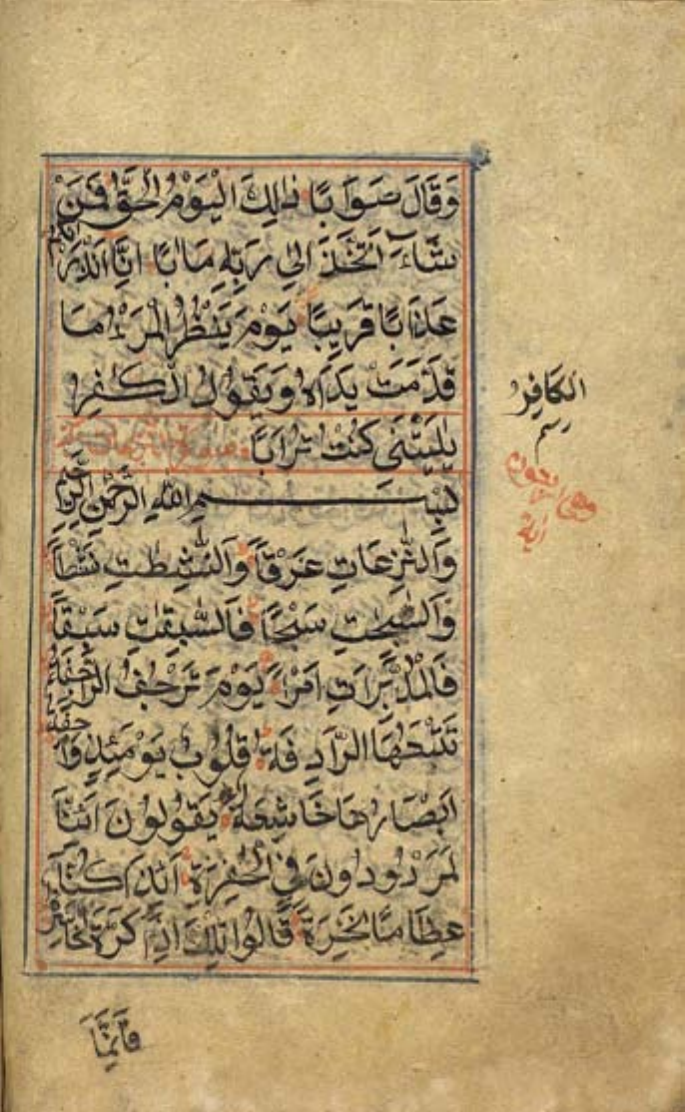 وَقَالَ صَوَابًا ذٰلِكَ الْيَوْمُ الْحَقُّ فَمَنْ
شَاءَ اتَّخَذَ اِلٰى رَبِّهٖ مَاٰبًا اِنَّا اَنْذَرْنَاكُمْ
عَذَابًا قَرِيبًا يَوْمَ يَنْظُرُ الْمَرْءُ مَا
قَدَّمَتْ يَدَاهُ وَيَقُولُ الْكٰفِرُ
يٰلَيْتَنِي كُنْتُ تُرَابًا
بِسْمِ اللّٰهِ الرَّحْمٰنِ الرَّحِيمِ
وَالنّٰزِعَاتِ غَرْقًا وَالنّٰشِطٰتِ نَشْطًا
وَالسّٰبِحٰتِ سَبْحًا فَالسّٰبِقٰتِ سَبْقًا
فَالْمُدَبِّرَاتِ اَمْرًا يَوْمَ تَرْجُفُ الرَّاجِفَةُ
تَتْبَعُهَا الرَّادِفَةُ قُلُوبٌ يَوْمَئِذٍ وَاجِفَةٌ
اَبْصَارُهَا خَاشِعَةٌ يَقُولُونَ ائِنَّا
لَمَرْدُودُونَ فِي الْحَافِرَةِ اَئِذَا كُنَّا
عِظَامًا نَخِرَةً قَالُوا تِلْكَ اِذًا كَرَّةٌ خَاسِرَةٌ
فَاِنَّمَا
الكَافِرُ
رسم